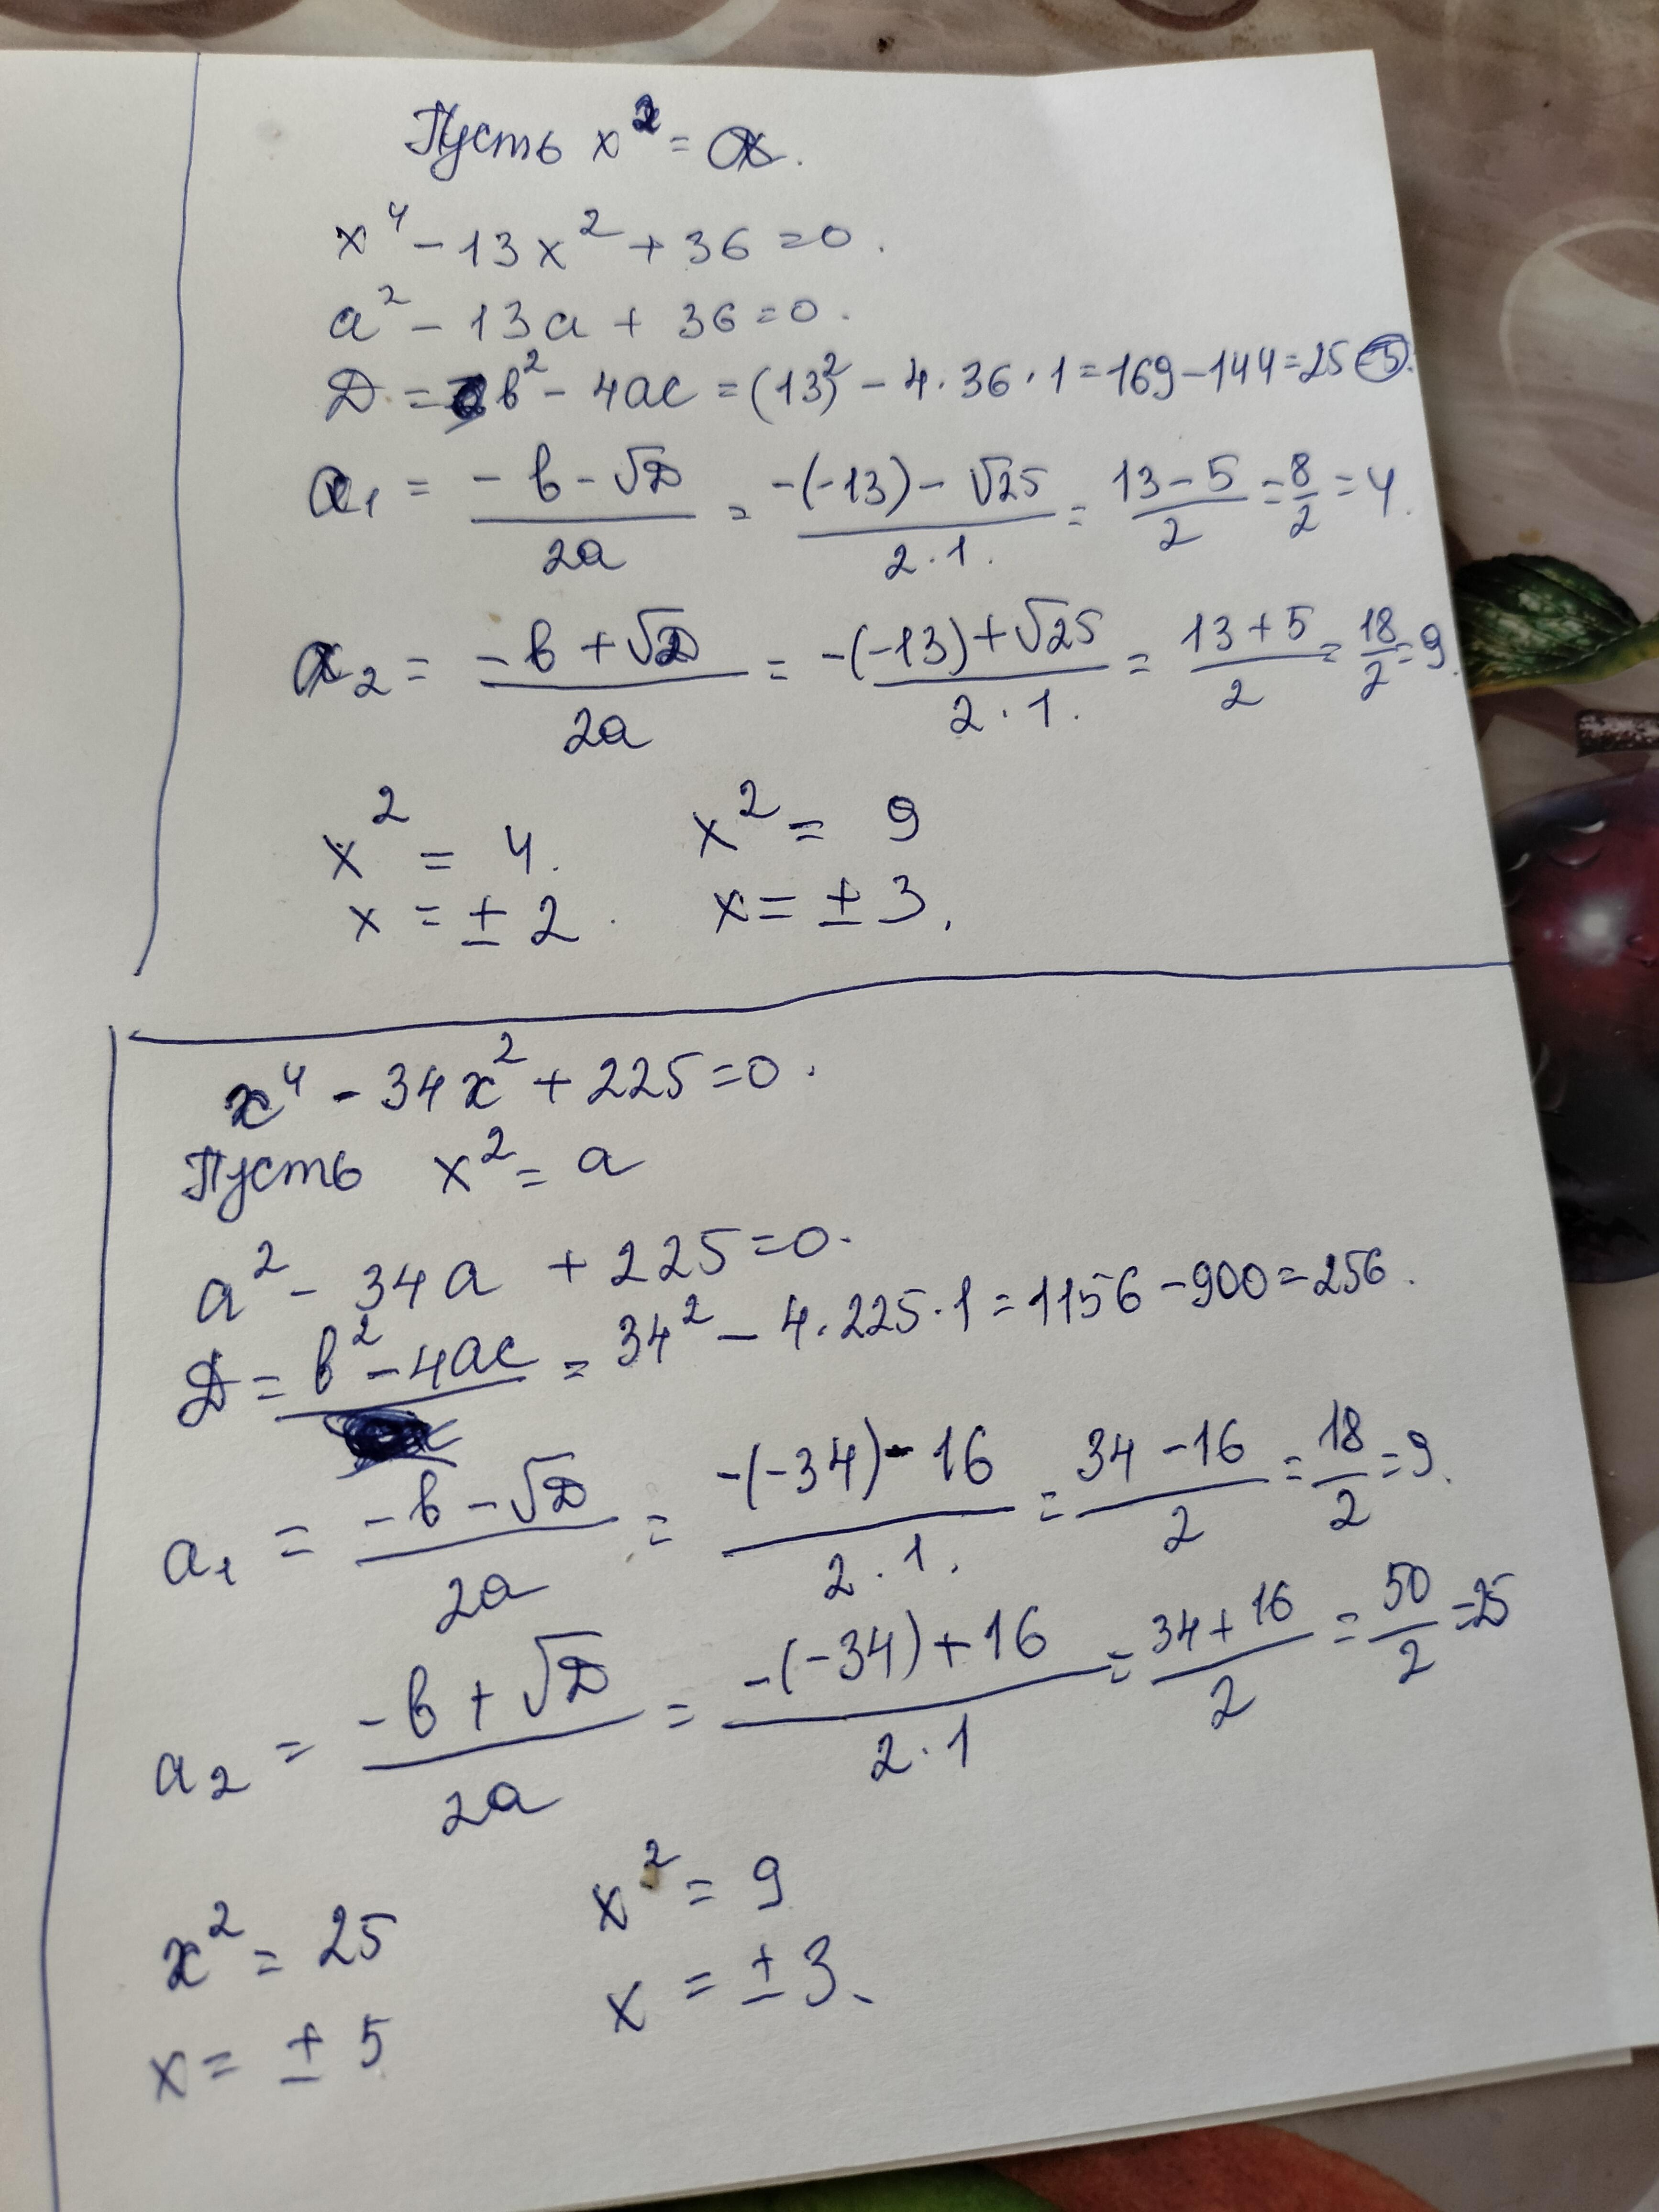 Пусть x² = a.
x⁴ - 13x² + 36 = 0.
a² - 13a + 36 = 0.
D = b² - 4ac = (13)² - 4·36·1 = 169 - 144 = 25 (5).
a₁ = (-b - √D)/2a = (-(-13) - √25)/(2·1.) = (13 - 5)/2 = 8/2 = 4.
a₂ = (-b + √D)/2a = (-(-13) + √25)/(2·1.) = (13 + 5)/2 = 18/2 = 9.
x² = 4. x² = 9
x = ± 2. x = ± 3.
x⁴ - 34x² + 225 = 0.
Пусть x² = a
a² - 34a + 225 = 0.
D = b² - 4ac = 34² - 4·225·1 = 1156 - 900 = 256.
a₁ = (-b - √D)/2a = (-(-34) - 16)/(2·1.) = (34 - 16)/2 = 18/2 = 9.
a₂ = (-b + √D)/2a = (-(-34) + 16)/(2·1) = (34 + 16)/2 = 50/2 = 25
x² = 25 x² = 9
x = ± 5 x = ± 3.